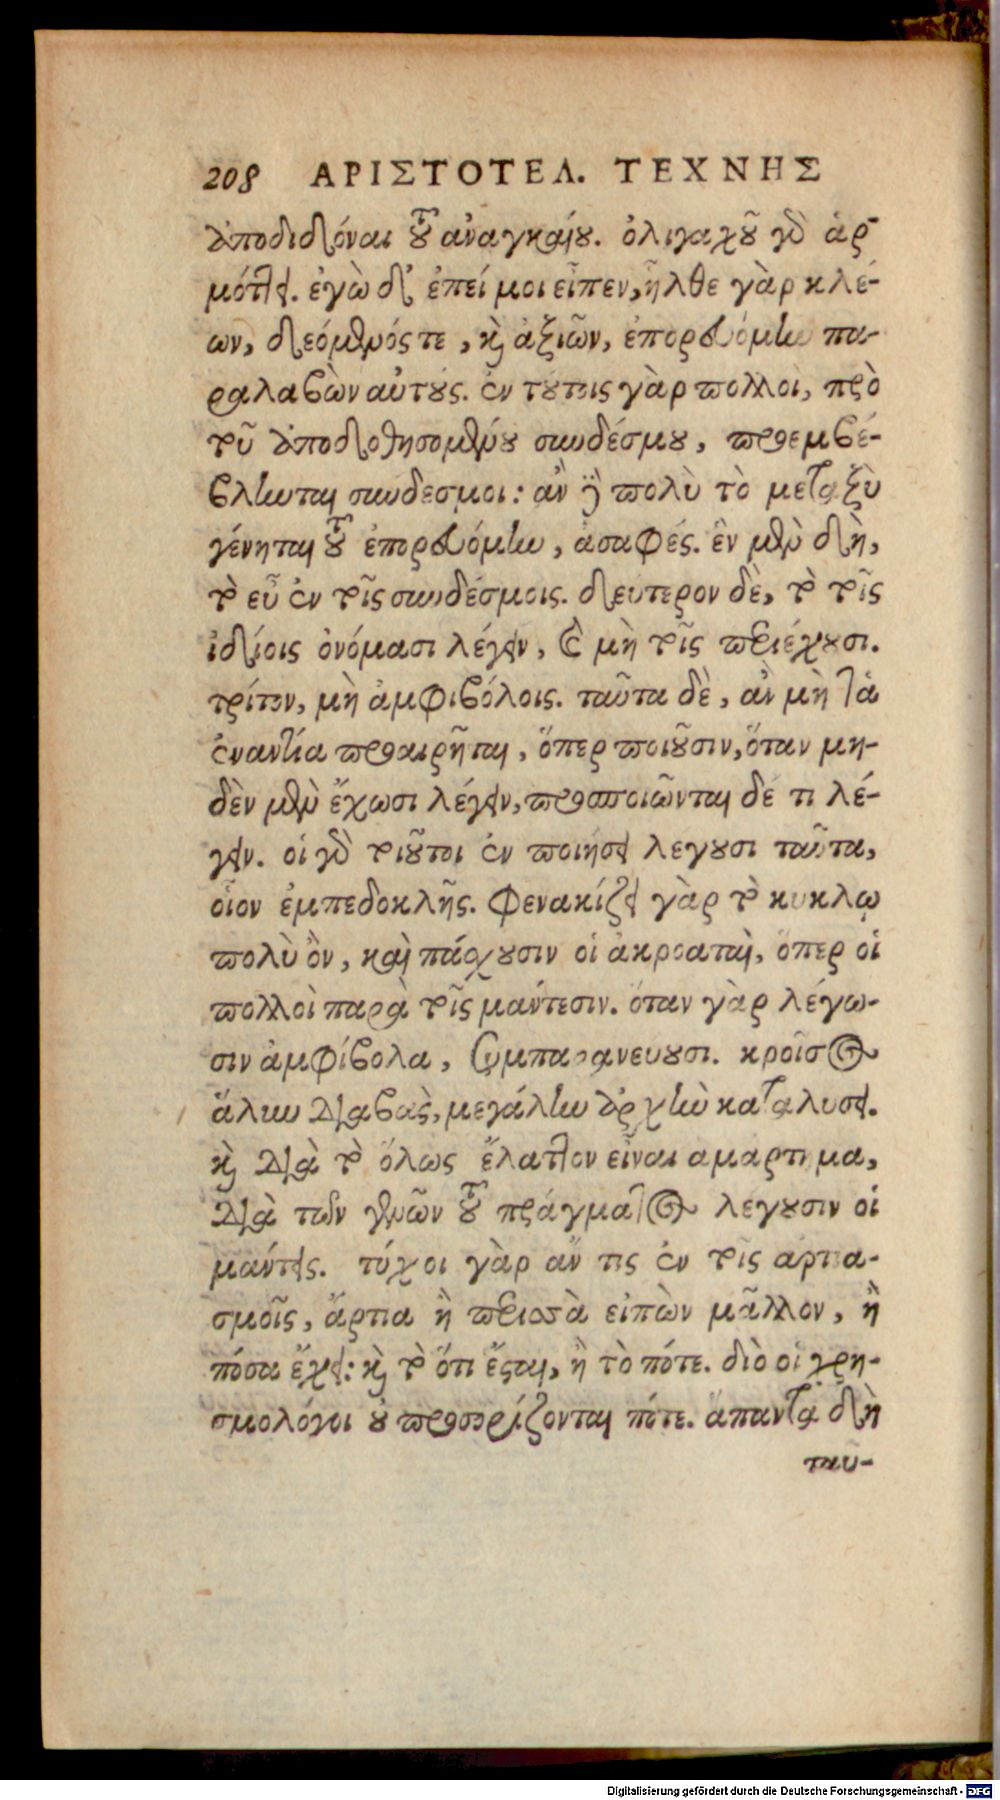 208 ΑΡΙΣΤΟΤΕΛ. ΤΕΧΝΗΣ
ἀποδιδόναι τοῦ ἀναγκαίου. ὀλιγαχοῦ γὰρ ἁρ-
μότει. ἐγὼ δ' ἐπεί μοι εἶπεν, ἦλθε γὰρ κλέ-
ων, δεόμενός τε, καὶ ἀξιῶν, ἐπορευόμην πα-
ραλαβὼν αὐτούς. ἐν τούτοις γὰρ πολλοὶ, πρὸ
τοῦ ἀποδοθησομένου συνδέσμου, προεμβέ-
βληνται συνδεσμοι: ἂν δὲ πολὺ τὸ μεταξὺ
γένηται τοῦ ἐπορευόμην, ἀσαφές. ἓν μὲν δὴ,
τὸ εὖ ἐν τοῖς συνδέσμοις. δεύτερον δὲ, τὸ τοῖς
ἰδίοις ὀνόμασι λέγειν, καὶ μὴ τοῖς περιέχουσι.
τρίτον, μὴ ἀμφιβόλοις. ταῦτα δὲ, ἂν μὴ τὰ
ἐναντία προαιρῆται, ὅπερ ποιοῦσιν, ὅταν μη-
δὲν μὲν ἔχωσι λέγειν, προσποιῶνται δέ τι λέ-
γειν. οἱ γὰρ τοιοῦτοι ἐν ποιήσει λεγουσι ταῦτα,
οἷον ἐμπεδοκλῆς. φενακίζει γὰρ τὸ κυκλῳ
πολὺ ὂν, καὶ πάσχουσιν οἱ ἀκροαταὶ, ὅπερ οἱ
πολλοὶ παρὰ τοῖς μάντεσιν. ὅταν γὰρ λέγω-
σιν ἀμφίβολα, συμπαρανευουσι. κροῖσος
ἅλυν διαβὰς, μεγάλην ἀρχὴν καταλυσει.
καὶ διὰ τὸ ὅλως ἔλαττον εἶναι αμαρτημα,
διὰ τῶν γενῶν τοῦ πράγματος λεγουσιν οἱ
μάντεις. τύχοι γὰρ ἄν τις ἐν τοῖς αρτια-
σμοῖς, ἄρτια ἢ περισσὰ εἰπὼν μᾶλλον, ἢ
πόσα ἔχει: καὶ τὸ ὅτι ἔσται, ἢ τὸ πότε. διὸ οἱ χρη-
σμολόγοι οὐ προσορίζονται πότε. ἅπαντα δὴ
ταῦ-
Digitalisierung gefördert durch die Deutsche Forschungsgemeinschaft - DFG